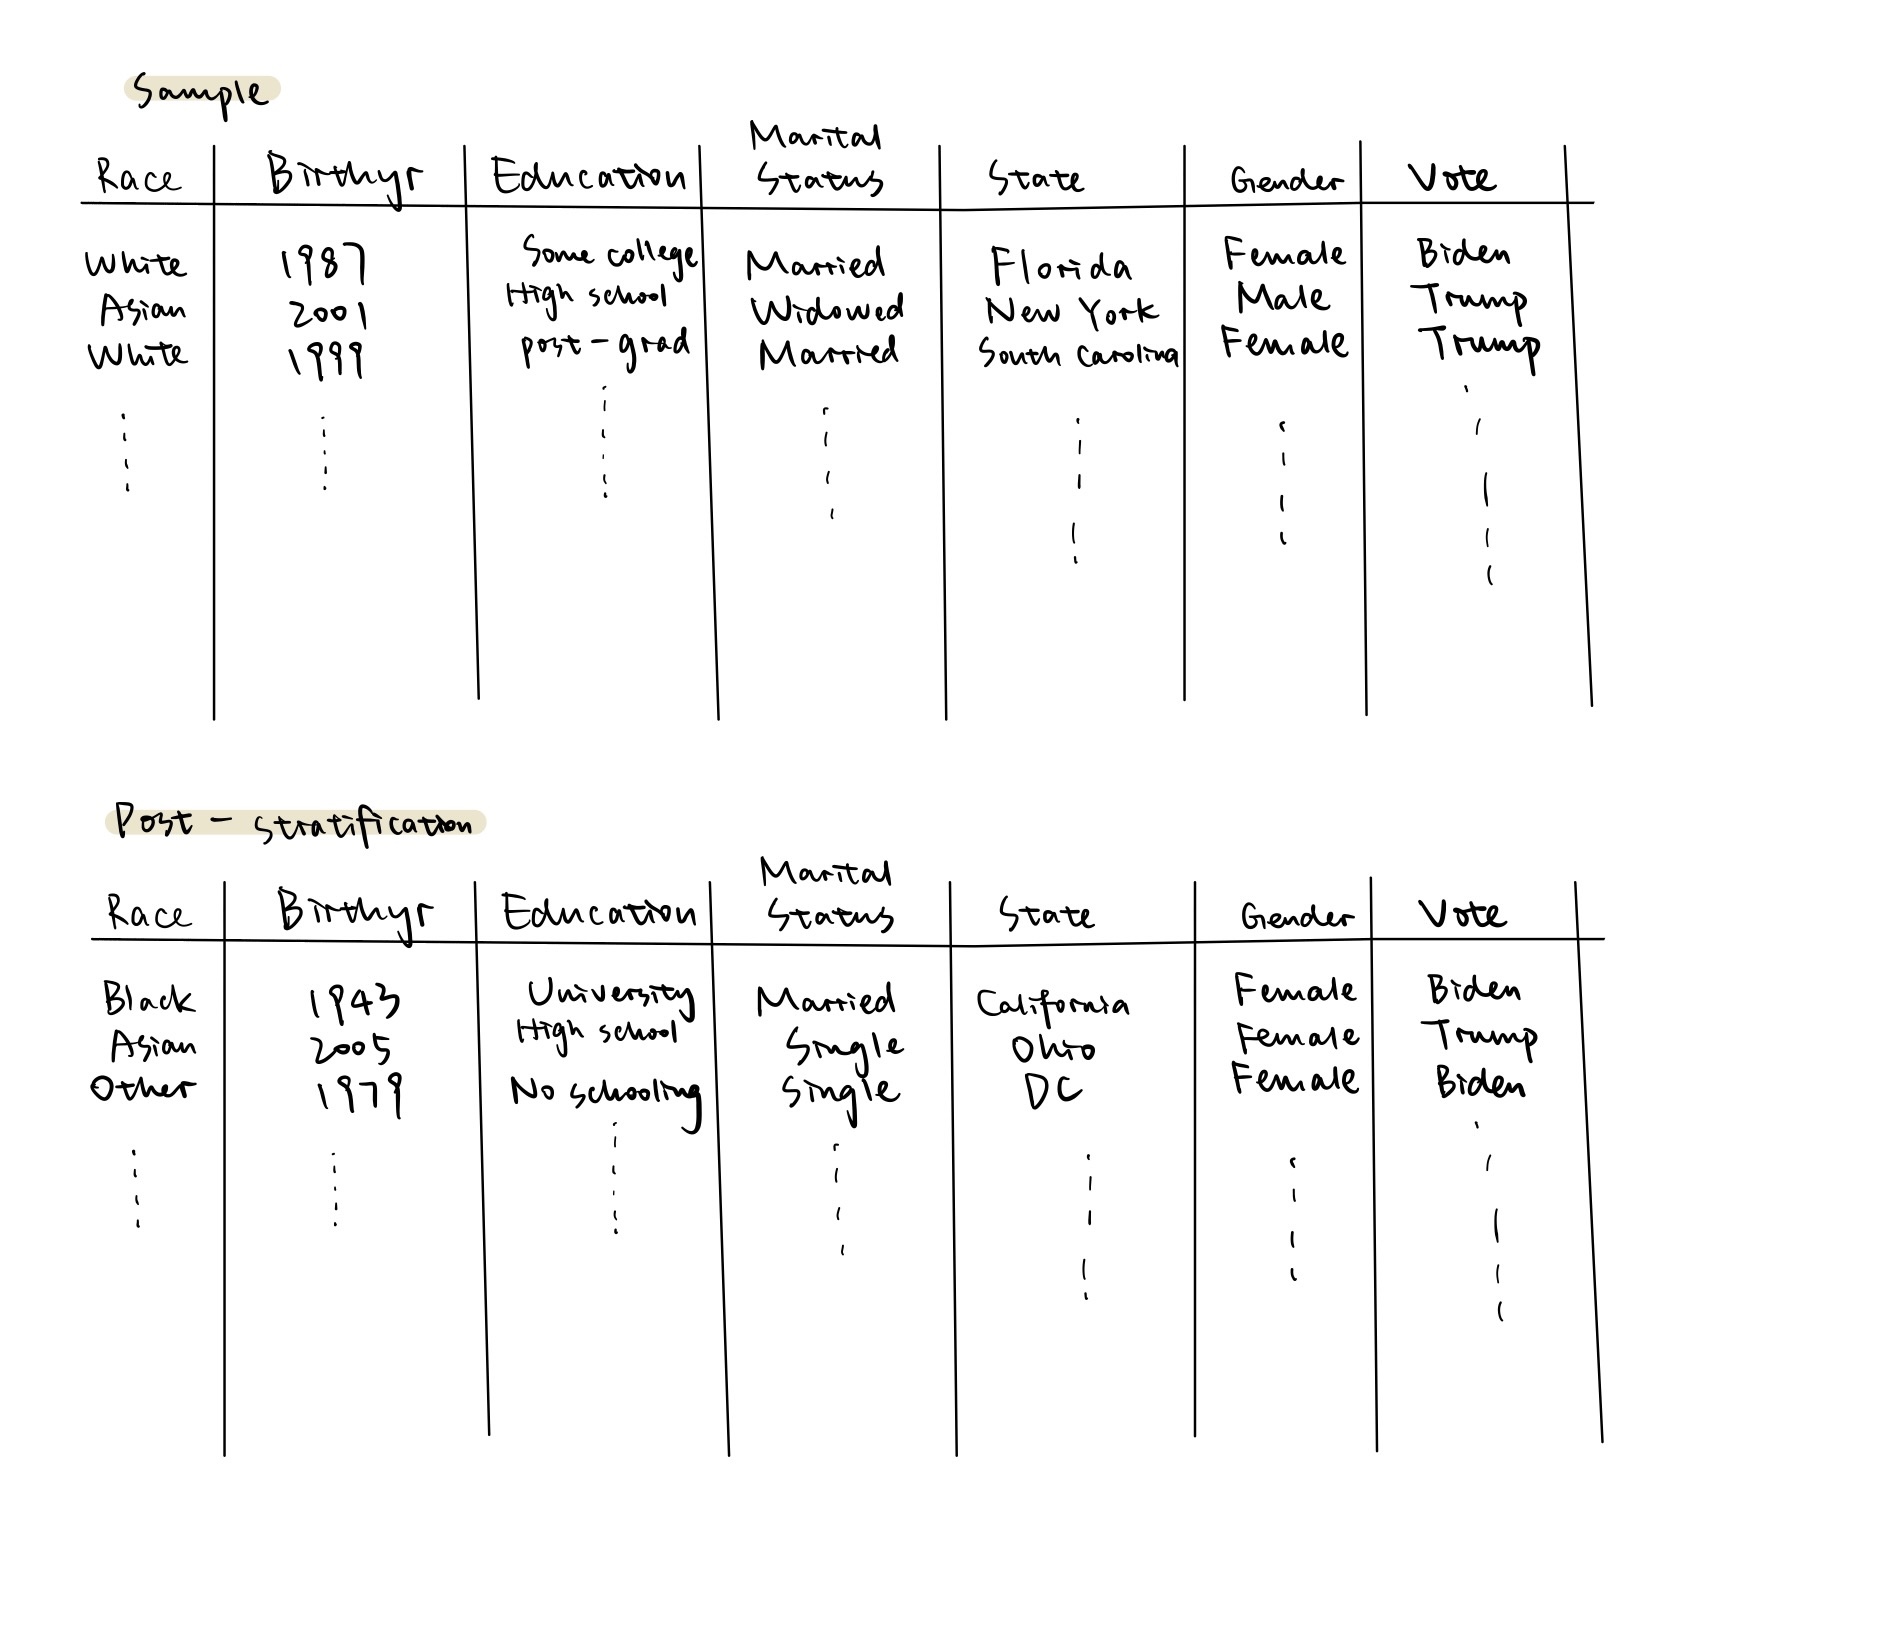 Sample
Race Birthyr Education Marital Status State Gender Vote
White 1987 Some college Married Florida Female Biden
Asian 2001 High school Widowed New York Male Trump
White 1999 post-grad Married South Carolina Female Trump
Post-stratification
Race Birthyr Education Marital Status State Gender Vote
Black 1943 University Married California Female Biden
Asian 2005 High school Single Ohio Female Trump
Other 1979 No schooling Single DC Female Biden